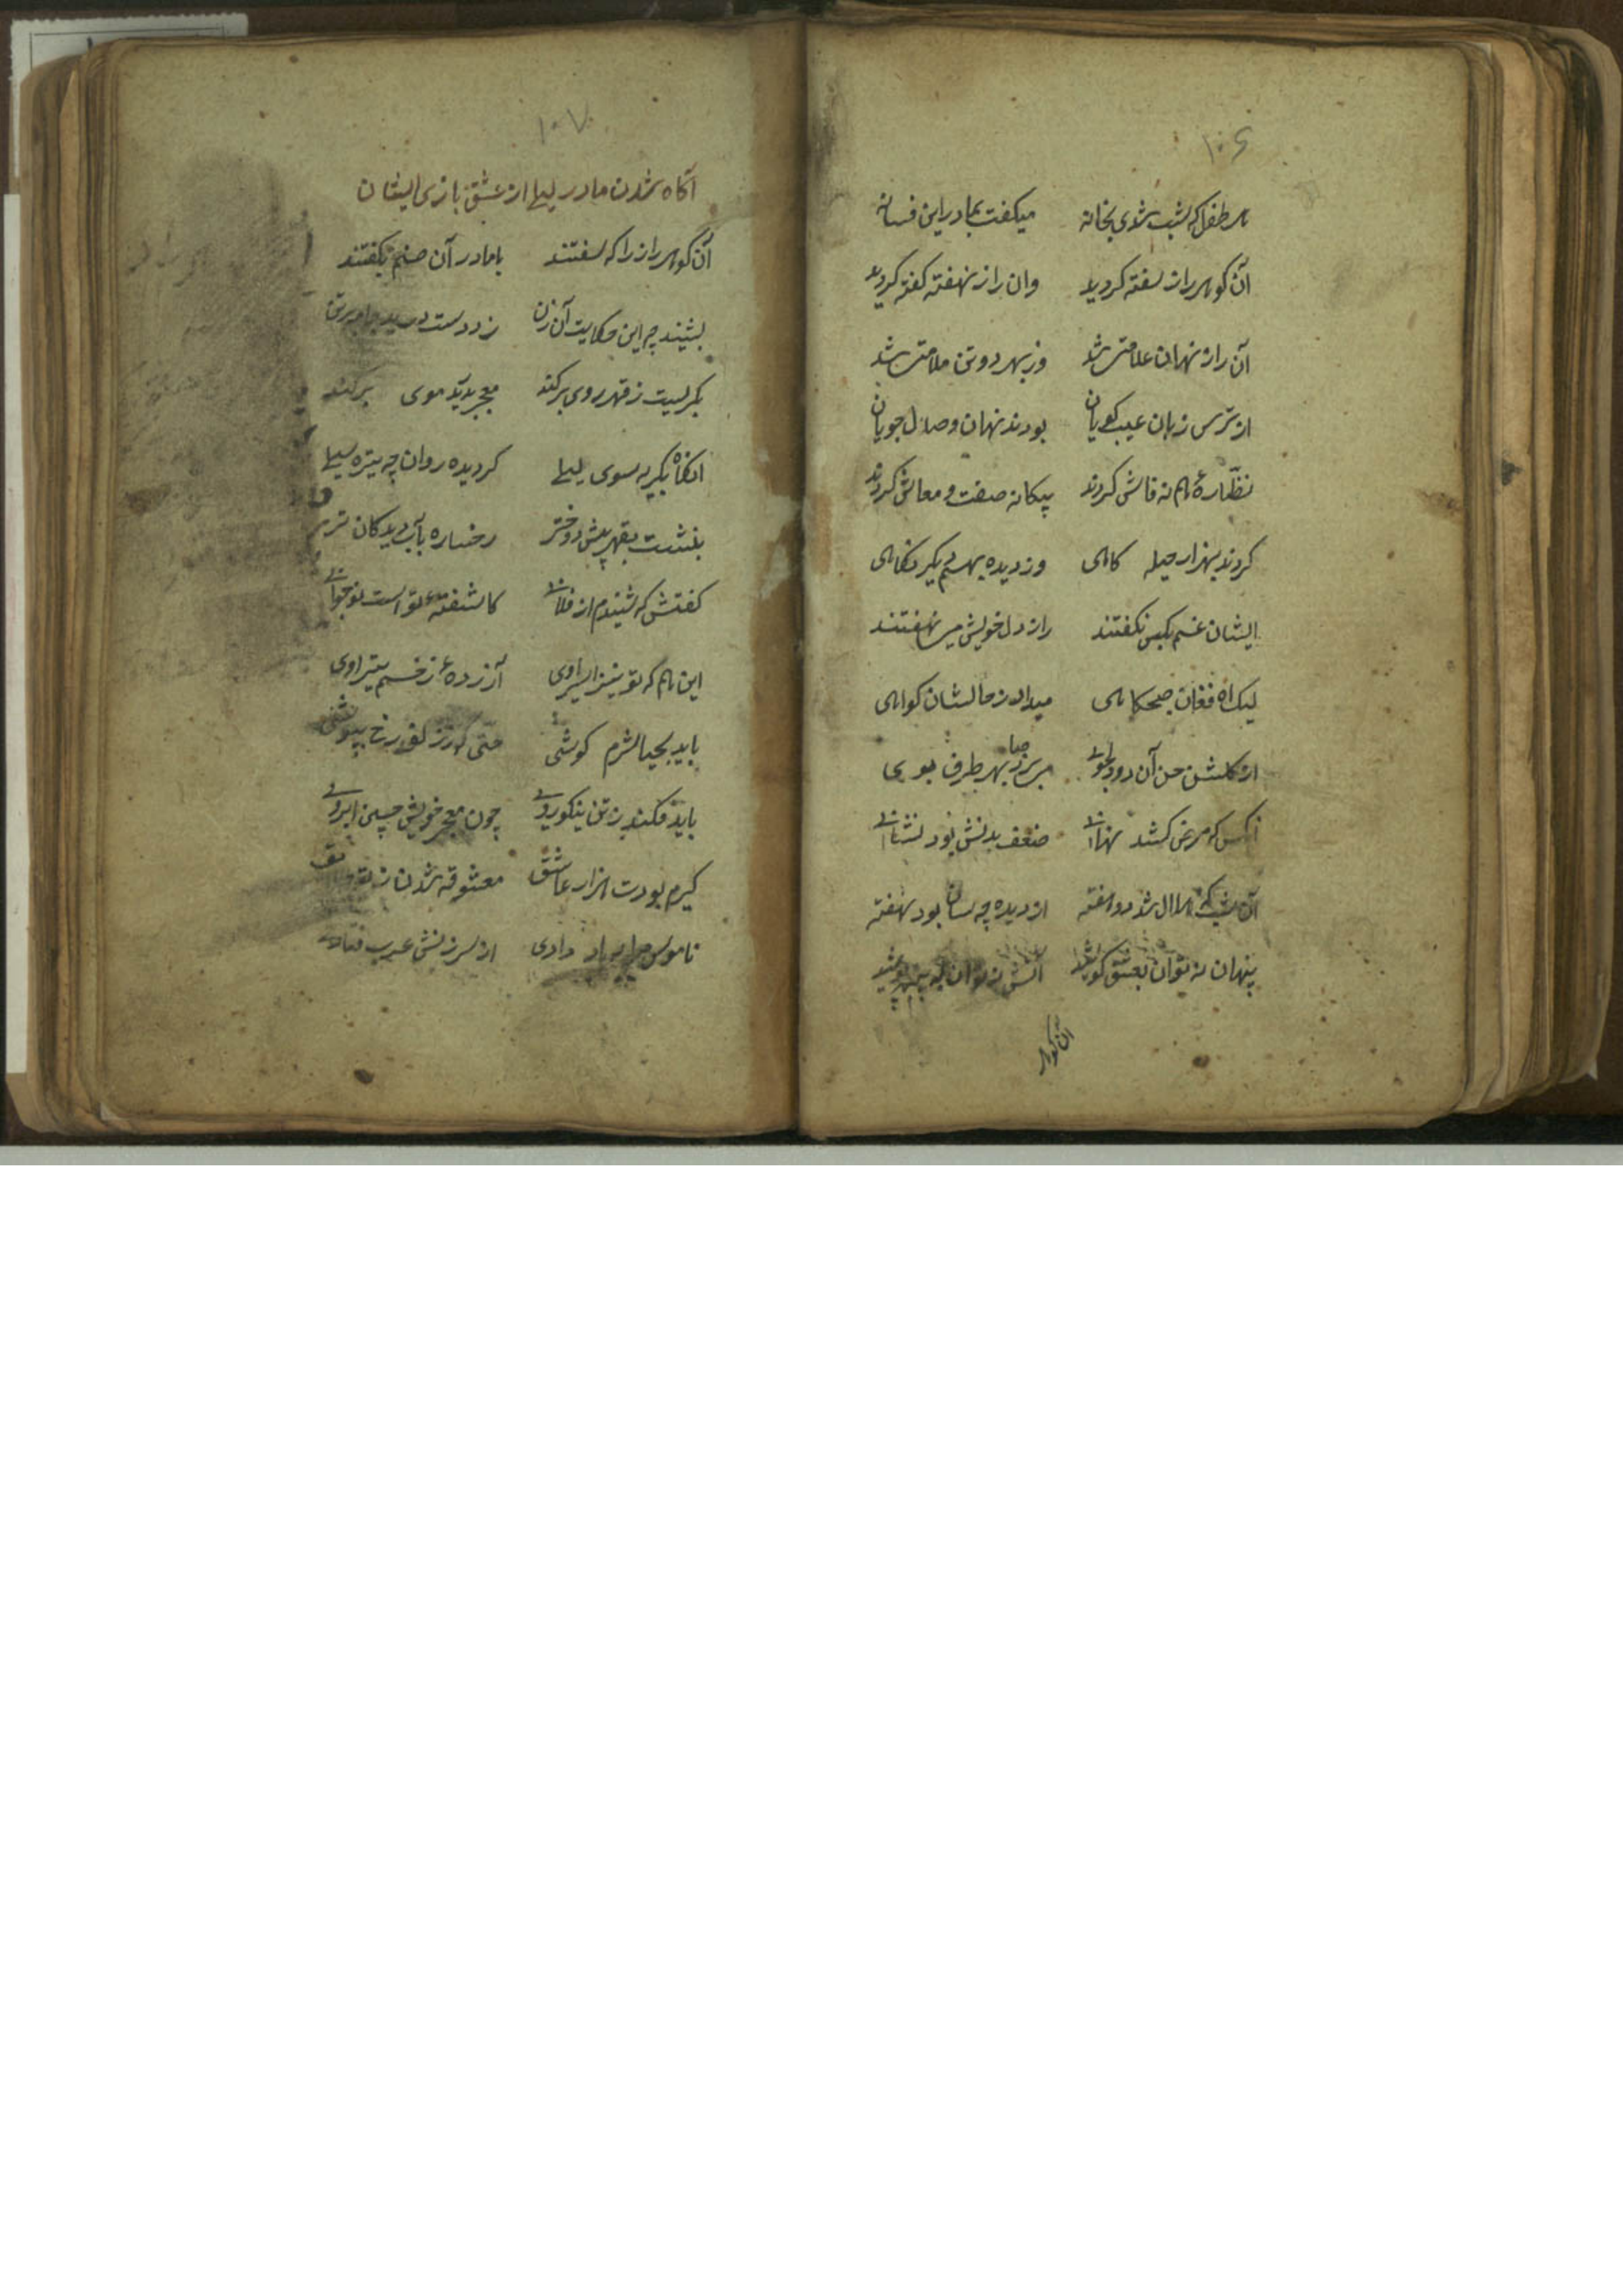 ۱۰۶
هر طفل که شب شدی بخانه میکفت بمادر این فسانه
آن کوهر راز سفته کردید وان راز نهفته کفته کردید
آن راز نهان علامتی شد وز بهر دو تن ملامتی شد
از ترس زبان عیب کویان بودند نهان وصال جویان
نظّارهٔ هم نه فاش کردند پیکانه صفت و معاش کردند
کردند بهزار حیله کاهی دزدیده بهم یکر نکاهی
ایشان غم بکس نکفتند راز دل خویش می نهفتند
لیک اه فغان صبحکاهی میداد ز حالشان کواهی
از کلشن حن آن دو دلجوی میزد صبا بهر طرف بوی
انکس که مرض کشد نهانی ضعف بدنش بود نشانی
آن شب که هلال شد دو هفته از دیده چه سان بود نهفته
پنهان نه توان بعشق کوشید اتش نه توان به پوشید
آن کوهر
۱۰۷
آکاه شدن مادر لیلی از عشق بازی ایشان
آن کوهر راز را که سفتند با مادر آن صنم بکفتند
بشیند چه این حکایت آن زن زد دست درید جامه بر تن
بکریست ز قهر روی برکند معجر بدرید موی برکند
انکاه بکریه سوی لیلی کردیده روان چه تیره سیلی
بنشست بقهر پیش دختر رخساره بآب دیدکان تر
کفتش که شنیدم از فلانی کاشفته تو است نوجوانی
این هم که تو نیز اسیر اوی آزردهٔ زخم تیر اوی
باید بحیا شرم کوشی حتی که ز رخ بپوشی
باید فکند زن نیکوروی چون معجر خویش چین ابروی
کیرم بودت هزار عاشق معشوقه شدن ز تو
ناموس مرا بباد دادی از سرزنش عرب